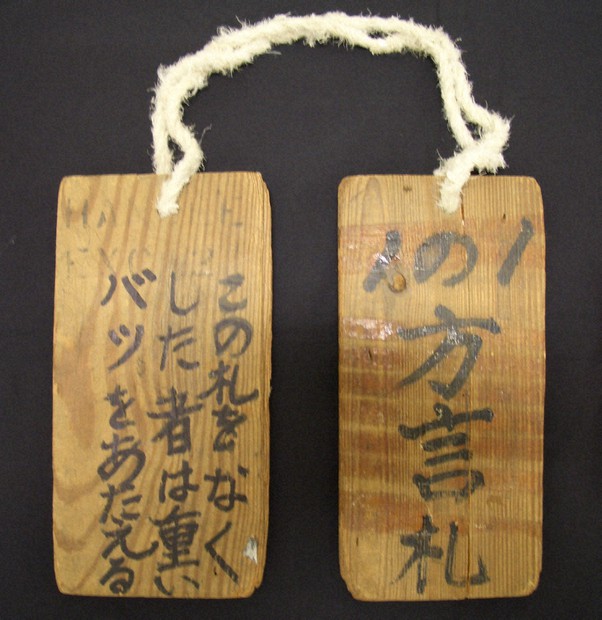 1の1
方言札
この札をなく
した者は重い
バツをあたえる